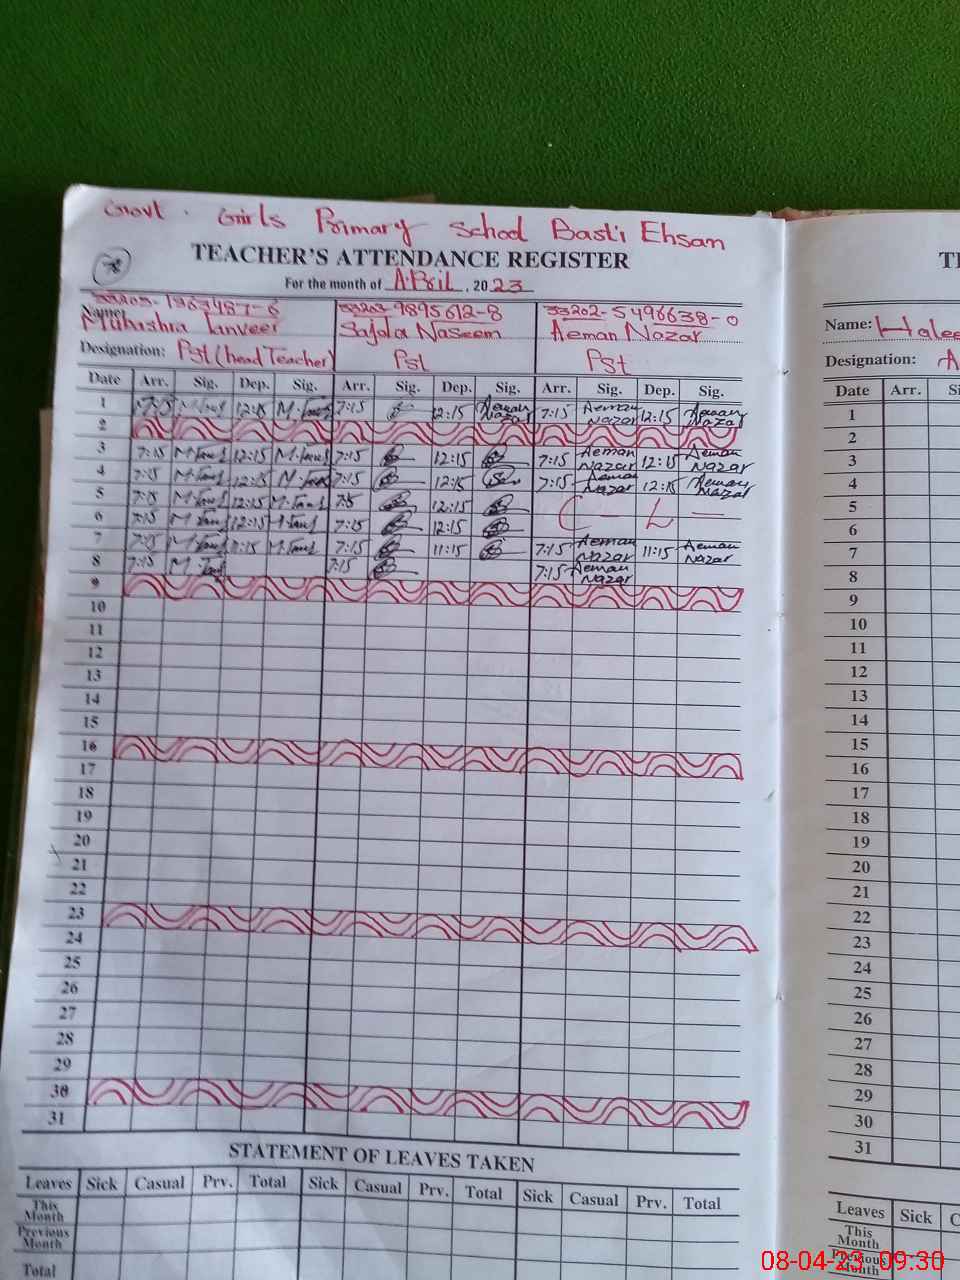 Govt. Girls Primary School Basti Ehsan
TEACHER'S ATTENDANCE REGISTER
For the month of April, 2023
Name: 33203-1363487-6 33203-9895612-8 33202-5496638-0
Mubashra Tanveer Sajda Naseem Aeman Nazar
Designation: Pst (head Teacher) Pst Pst
Date Arr. Sig. Dep. Sig. Arr. Sig. Dep. Sig. Arr. Sig. Dep. Sig.
1 7:15 12:15 7:15 12:15 Aeman Nazar 7:15 Aeman Nazar 12:15 Aeman Nazar
2
3 7:15 12:15 7:15 12:15 7:15 Aeman Nazar 12:15 Aeman Nazar
4 7:15 12:15 7:15 12:15 7:15 Aeman Nazar 12:15 Aeman Nazar
5 7:15 12:15 7:15 12:15 C - L -
6 7:15 12:15 7:15 12:15
7 7:15 11:15 7:15 11:15 7:15 Aeman Nazar 11:15 Aeman Nazar
8 7:15 7:15 7:15 Aeman Nazar
9
10
11
12
13
14
15
16
17
18
19
20
21
22
23
24
25
26
27
28
29
30
31
STATEMENT OF LEAVES TAKEN
Leaves Sick Casual Prv. Total Sick Casual Prv. Total Sick Casual Prv. Total
This Month
Previous Month
Total
Name:
Designation:
Date Arr.
1
2
3
4
5
6
7
8
9
10
11
12
13
14
15
16
17
18
19
20
21
22
23
24
25
26
27
28
29
30
31
Leaves Sick
This Month
Previous Month
08-04-23 09:30